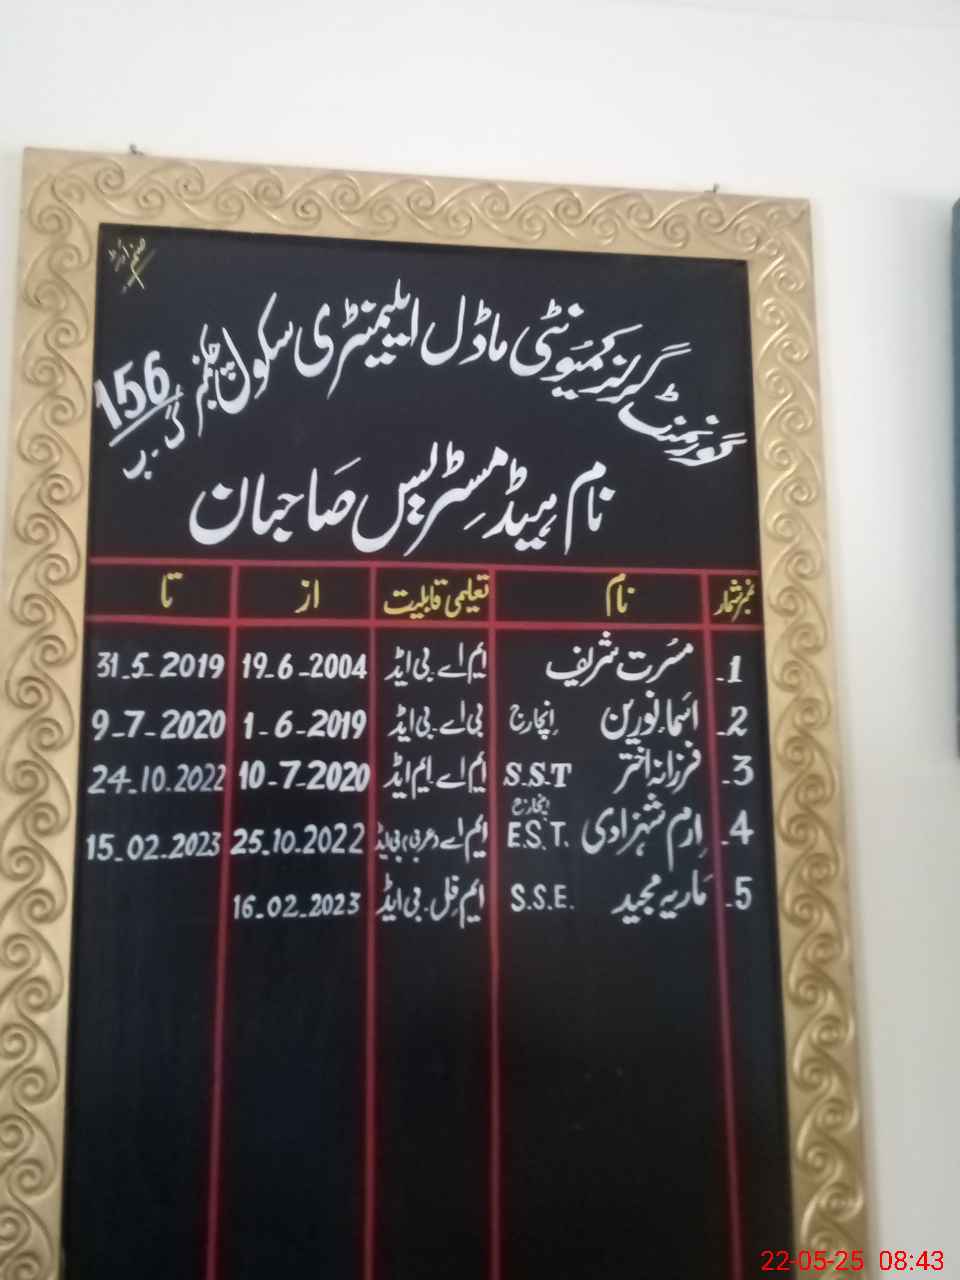 گورنمنٹ گرلز کمیونٹی ماڈل ایلیمنٹری سکول چک نمبر 156 گ ب
نام ہیڈ مسٹریس صاحبان
نمبر شمار نام تعلیمی قابلیت از تا
1۔ مسرت شریف ایم اے۔ بی ایڈ 19.6-2004 31.5-2019
2۔ اسماء نورین انچارج بی اے۔ بی ایڈ 1-6-2019 9-7-2020
3۔ فرزانہ اختر S.S.T ایم اے۔ ایم ایڈ 10-7-2020 24.10.2022
4۔ ارم شہزادی انچارج E.S.T. ایم اے (عربی) بی ایڈ 25.10.2022 15.02.2023
5۔ ماریہ مجید S.S.E. ایم فل۔ بی ایڈ 16.02.2023
22-05-25 08:43